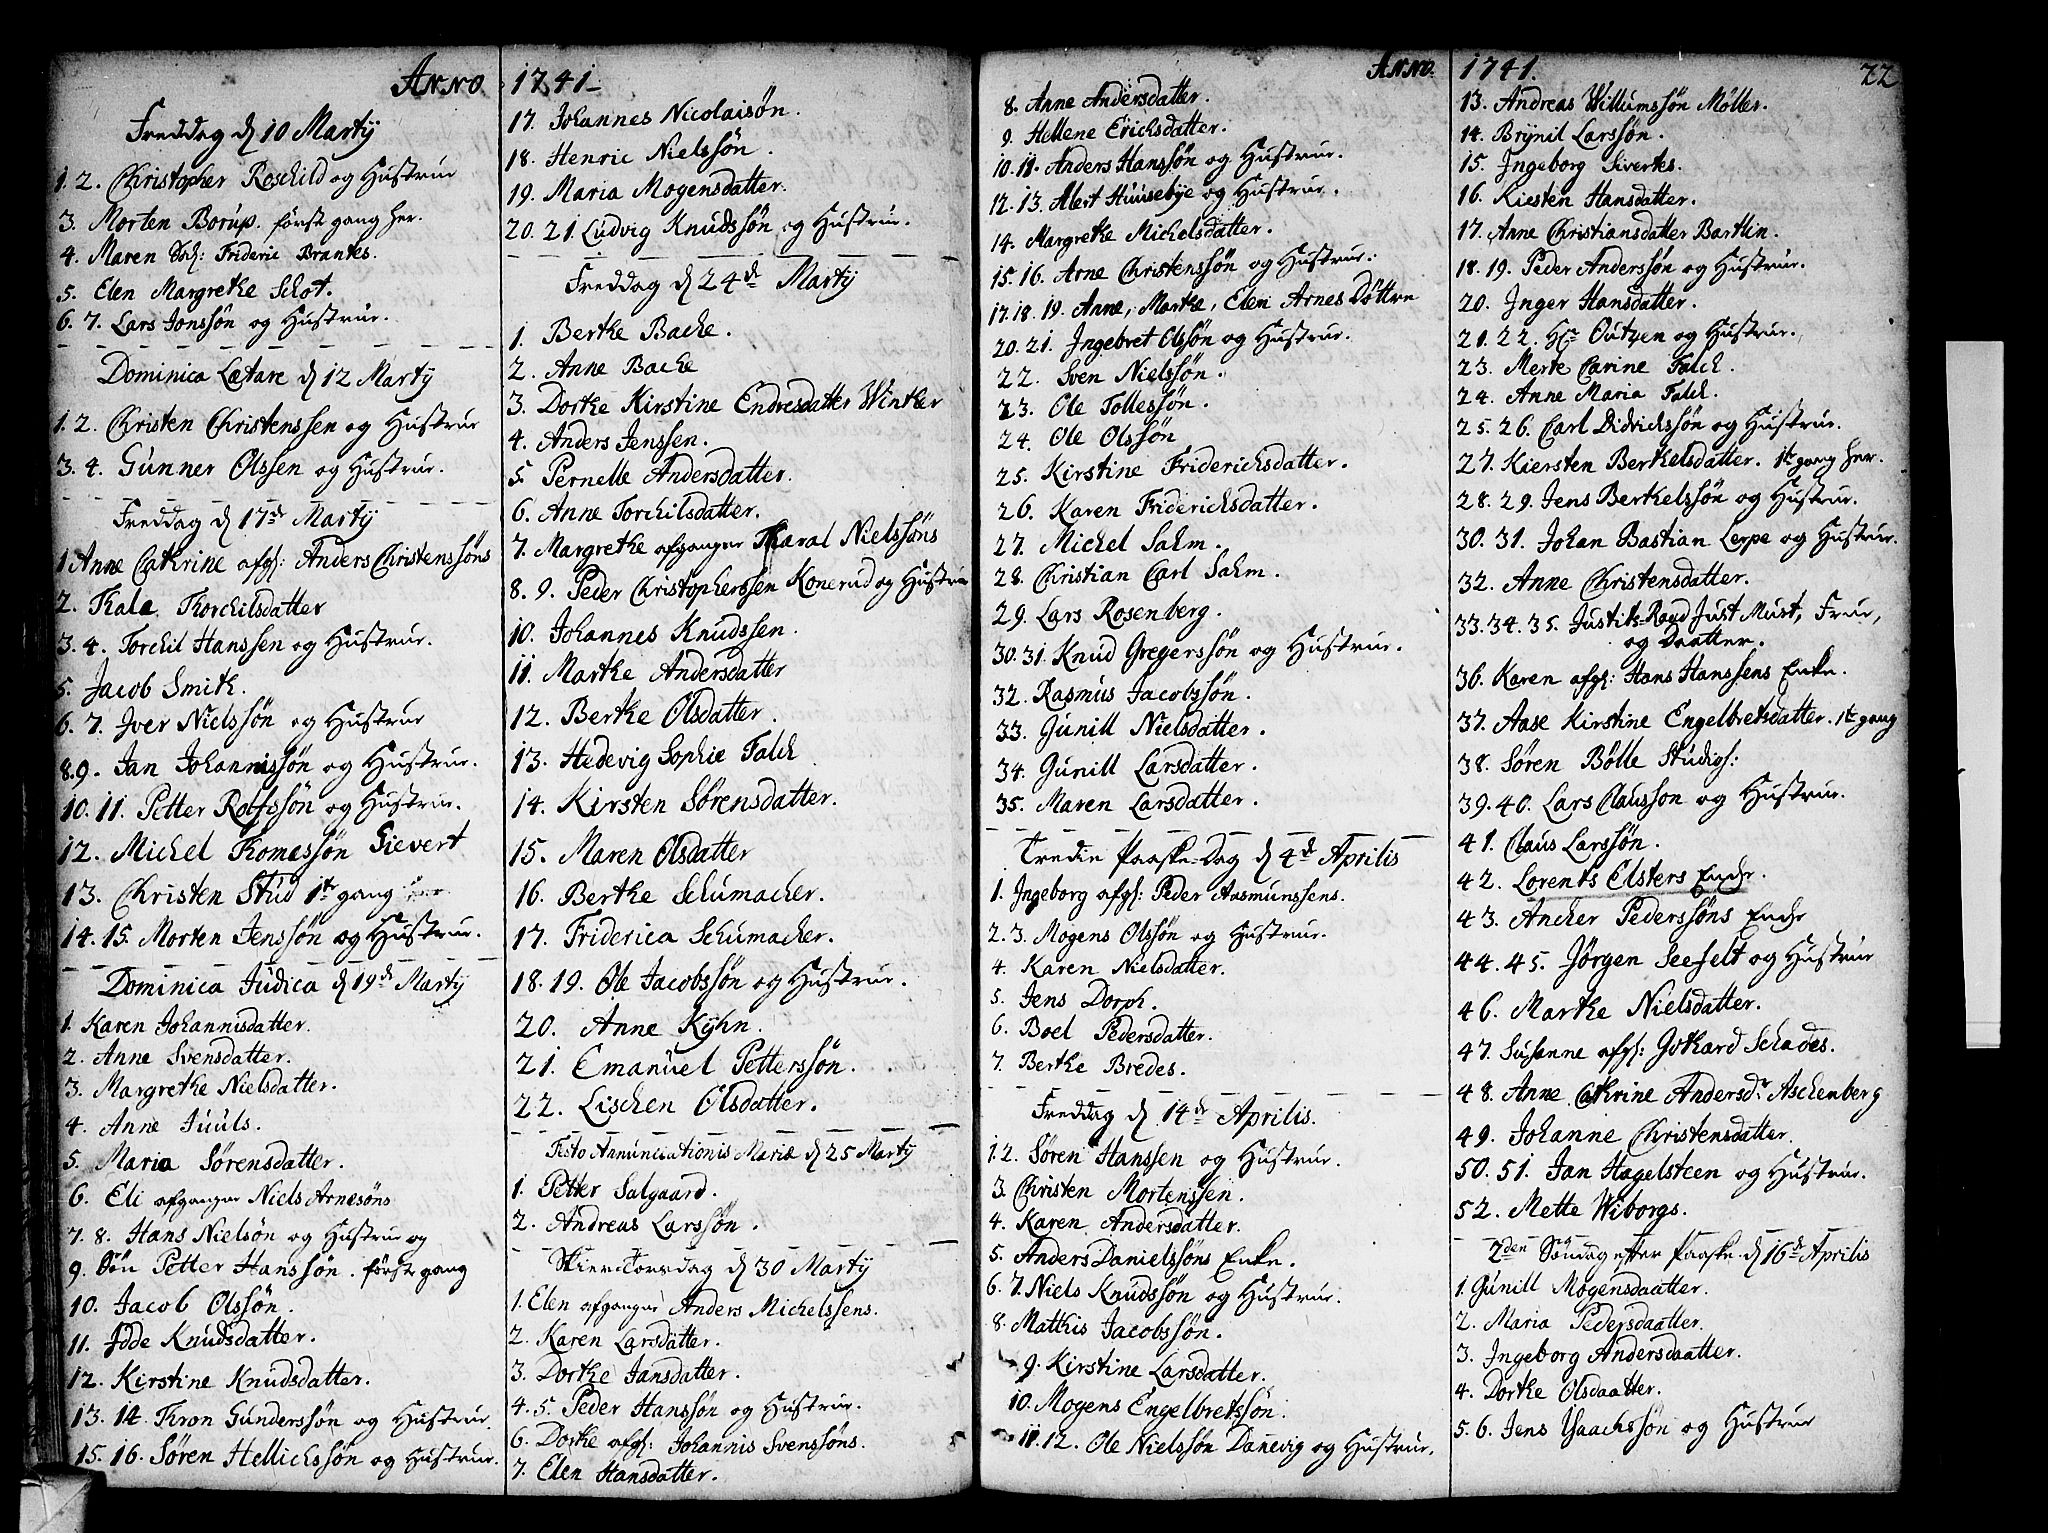 Anno
Freddag d 10 Martij
1. 2. Christopher Roschild og Hustrue
3. Morten Borup. første gang her.
4. Maren Sal: Frideric Brantes.
5. Elen Margrethe Schot.
6. 7. Lars Jonssøn og Hustrue.
Dominica Lætare d 12 Martij
1. 2. Christen Christenssen og Hustrue
3. 4. Gunner Olssen og Hustrue.
Freddag d 17de Martij
1 Anne Cathrine afg: Anders Christenssøns
2. Thale Thorchilsdatter
3. 4. Torchil Hanssen og Hustrue.
5. Jacob Smith.
6. 7. Iver Nielssøn og Hustrue
8. 9. Jan Johannissøn og Hustrue.
10. 11. Petter Rolfssøn og Hustrue.
12. Michel Thomessøn Sievert
13. Christen Stud 1te gang her
14. 15. Morten Jenssøn og Hustrue.
Dominica Judica d 19de Martij
1. Karen Johannisdatter.
2. Anne Svensdatter.
3. Margrethe Nielsdatter.
4. Anne Juuls.
5. Maria Sørensdatter.
6. Eli afgangne Niels Arnesøns
7. 8. Hans Nielsøn og Hustrue og
9. Søn Petter Hanssøn. første gang
10. Jacob Olssøn.
11. Idde Knudsdatter.
12. Kirstine Knudsdatter.
13. 14. Thron Gunderssøn og Hustrue.
15. 16. Søren Hellichssøn og Hustrue.
1741
17. Johannes Nicolaisøn.
18. Henric Nielssøn.
19. Maria Mogensdatter.
20. 21. Ludvig Knudssøn og Hustrue.
Freddag d 24de Martij
1. Berthe Bache.
2. Anne Bache
3. Dorthe Kirstine Endresdatter Winther
4. Anders Jenssen.
5. Pernelle Andersdatter.
6. Anne Torchilsdatter.
7. Margrethe afgangne Tharal Nielssøns
8. 9. Peder Christopherssen Konerud og Hustrue
10. Johannes Knudssen.
11. Marthe Andersdatter
12. Berthe Olsdatter.
13. Hedevig Sophie Falch
14. Kirsten Sørensdatter.
15. Maren Olsdatter
16. Berthe Schumacher.
17. Friderica Schumacher.
18. 19. Ole Jacobssøn og Hustrue.
20. Anne Kyhn.
21. Emanuel Petterssøn.
22. Lischen Olsdatter.
Festo Annunciationis Mariæ d 25 Martij
1. Petter Salgaard.
2. Andreas Larssøn.
Skier-Torsdag d 30 Martij
1. Elen afgangne Anders Michelssens.
2. Karen Larsdatter.
3. Dorthe Jansdatter.
4. 5. Peder Hanssøn og Hustrue.
6. Dorthe afg: Johannis Svenssøns.
7. Elen Hansdatter.
Anno.
8. Anne Andersdatter.
9. Hellene Erichsdatter.
10. 11. Anders Hanssøn og Hustrue.
12. 13. Alert Huusebye og Hustrue.
14. Margrethe Michelsdatter.
15. 16. Arne Christenssøn og Hustrue.
17. 18. 19. Anne, Marthe, Elen Arnes Døttre
20. 21. Ingebret Olssøn og Hustrue.
22. Sven Nielssøn.
23. Ole Tollessøn.
24. Ole Olssøn
25. Kirstine Friderichsdatter.
26. Karen Friderichsdatter.
27. Michel Sahm.
28. Christian Carl Sahm.
29. Lars Rosenberg.
30. 31. Knud Gregerssøn og Hustrue.
32. Rasmus Jacobssøn.
33. Gunill Nielsdatter.
34. Gunill Larsdatter.
35. Maren Larsdatter.
Tredie Paaske-Dag d 4de Aprilis
1. Ingeborg afg: Peder Aasmunssens.
2. 3. Mogens Olssøn og Hustrue.
4. Karen Nielsdatter.
5. Jens Dorph.
6. Boel Pedersdatter.
7. Berthe Bredes.
Freddag d 14de Aprilis.
1. 2. Søren Hanssen og Hustrue.
3. Christen Mortenssen.
4. Karen Andersdatter.
5. Anders Danielssøns Enke.
6. 7. Niels Knudssøn og Hustrue.
8. Mathis Jacobssøn.
9. Kirstine Larsdatter.
10. Mogens Engelbretssøn.
11. 12. Ole Nielssøn Danevig og Hustrue.
1741.
22
13. Andreas Willumssøn Møller.
14. Brynil Larssøn.
15. Ingeborg Siverts.
16. Kiesten Hansdatter.
17. Anne Christiansdatter Bartlin.
18. 19. Peder Anderssøn og Hustrue.
20. Inger Hansdatter.
21. 22. Hr Outzen og Hustrue.
23. Merte Carine Falch.
24. Anne Maria Falch.
25. 26. Carl Didrichssøn og Hustrue.
27. Kiersten Berthelsdatter. 1te gang her.
28. 29. Jens Berthelssøn og Hustrue.
30. 31. Johan Bastian Lerpe og Hustrue.
32. Anne Christensdatter.
33. 34. 35. Justits-Raad Just Must, Frue,
og Daatter.
36. Karen afg: Hans Hanssens Enke.
37. Aase Kirstine Engelbretsdatter. 1te gang
38. Søren Bølle Studios:
39. 40. Lars Clausson og Hustrue.
41. Claus Larssøn.
42. Lorents Elsters Enche.
43. Ancher Pederssøns Enche
44. 45. Jørgen Seefelt og Hustrue
46. Marthe Nielsdatter.
47. Susanne afg: Gothard Schades.
48. Anne Cathrine Andersd: Aschenberg
49. Johanne Christensdatter.
50. 51. Jan Hagelsteen og Hustrue.
52. Mette Wiborgs.
2den Søndag efter Paaske d 16de Aprilis
1. Gunill Mogensdaatter.
2. Maria Pedersdaatter.
3. Ingeborg Andersdaatter.
4. Dorthe Olsdaatter.
5. 6. Jens Isaachssøn og Hustrue